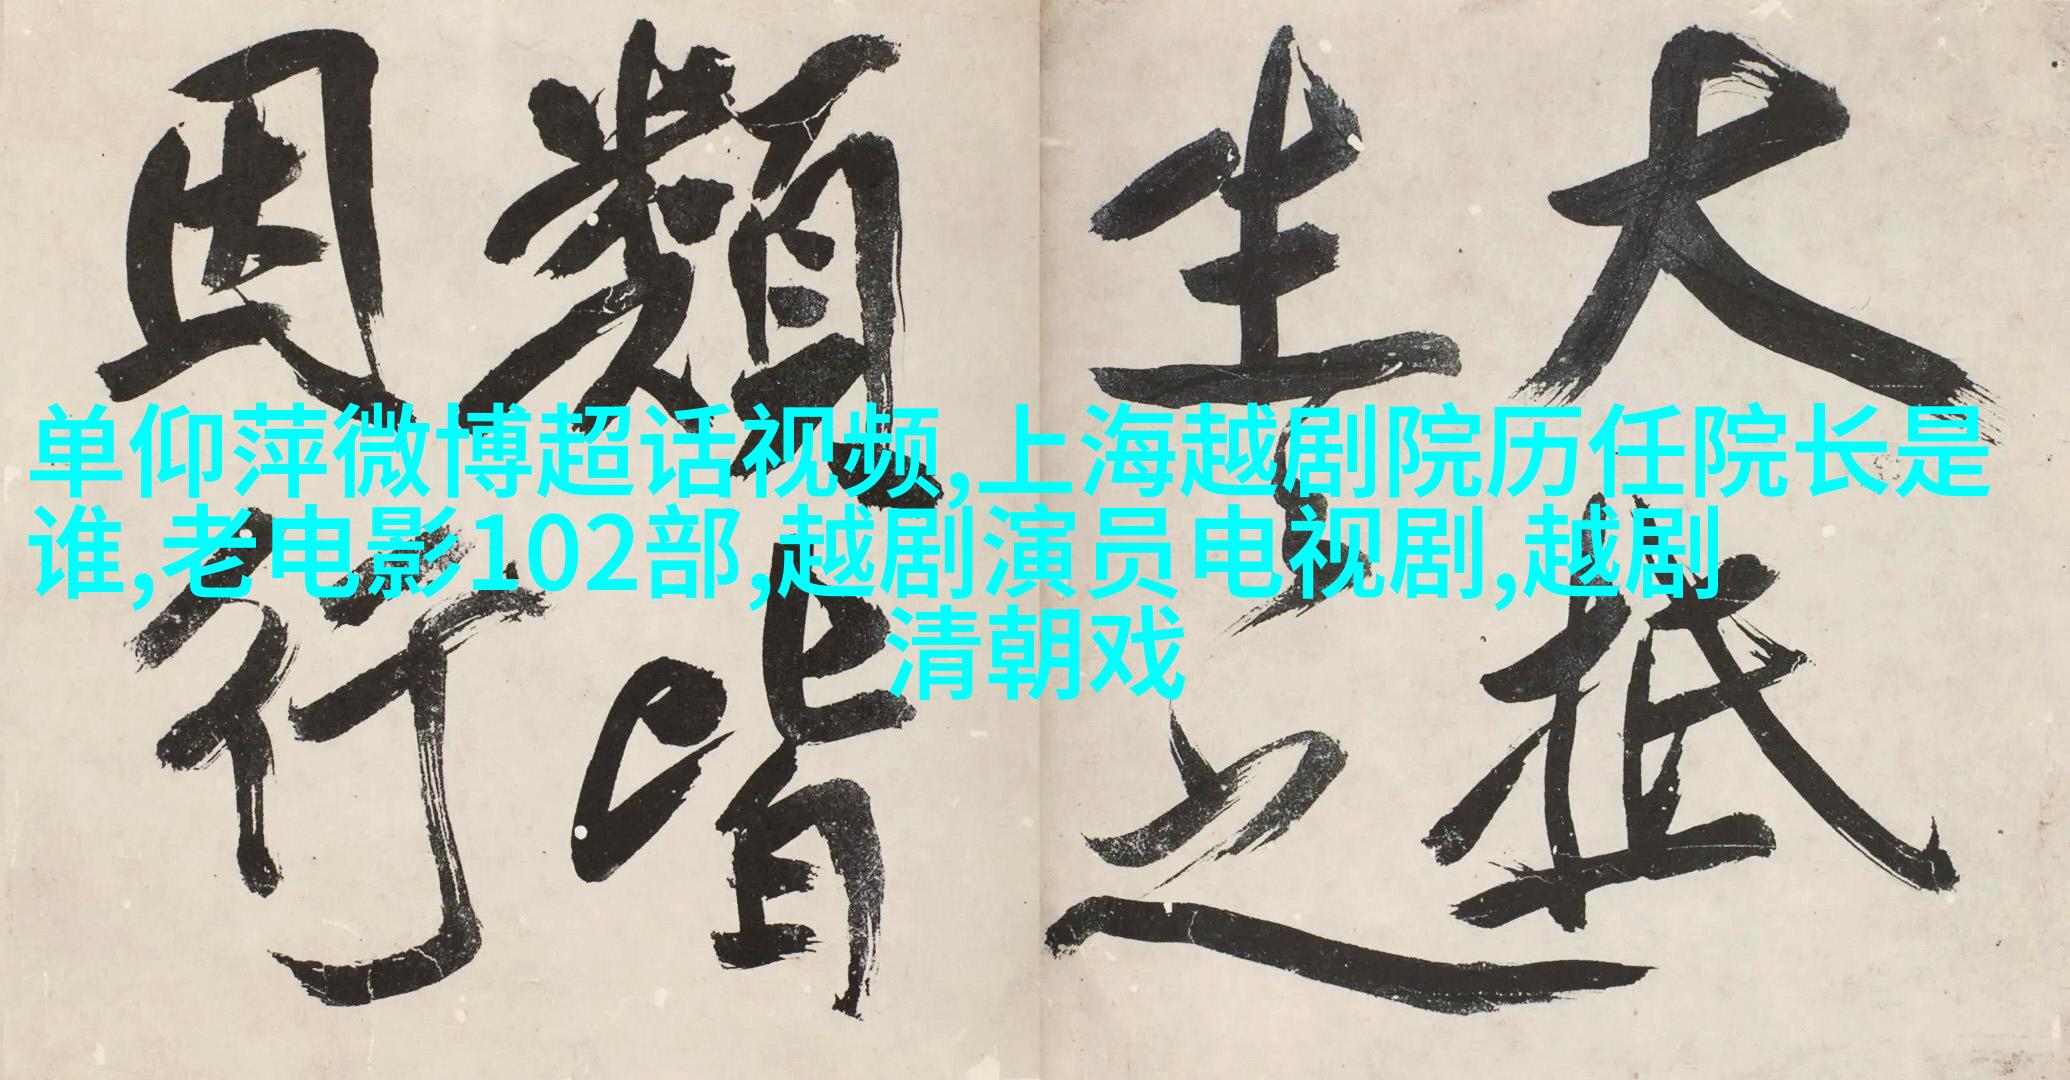 大抵
生之
類皆
因行
单仰萍微博超话视频,上海越剧院历任院长是
谁,老电影102部,越剧演员电视剧,越剧
清朝戏